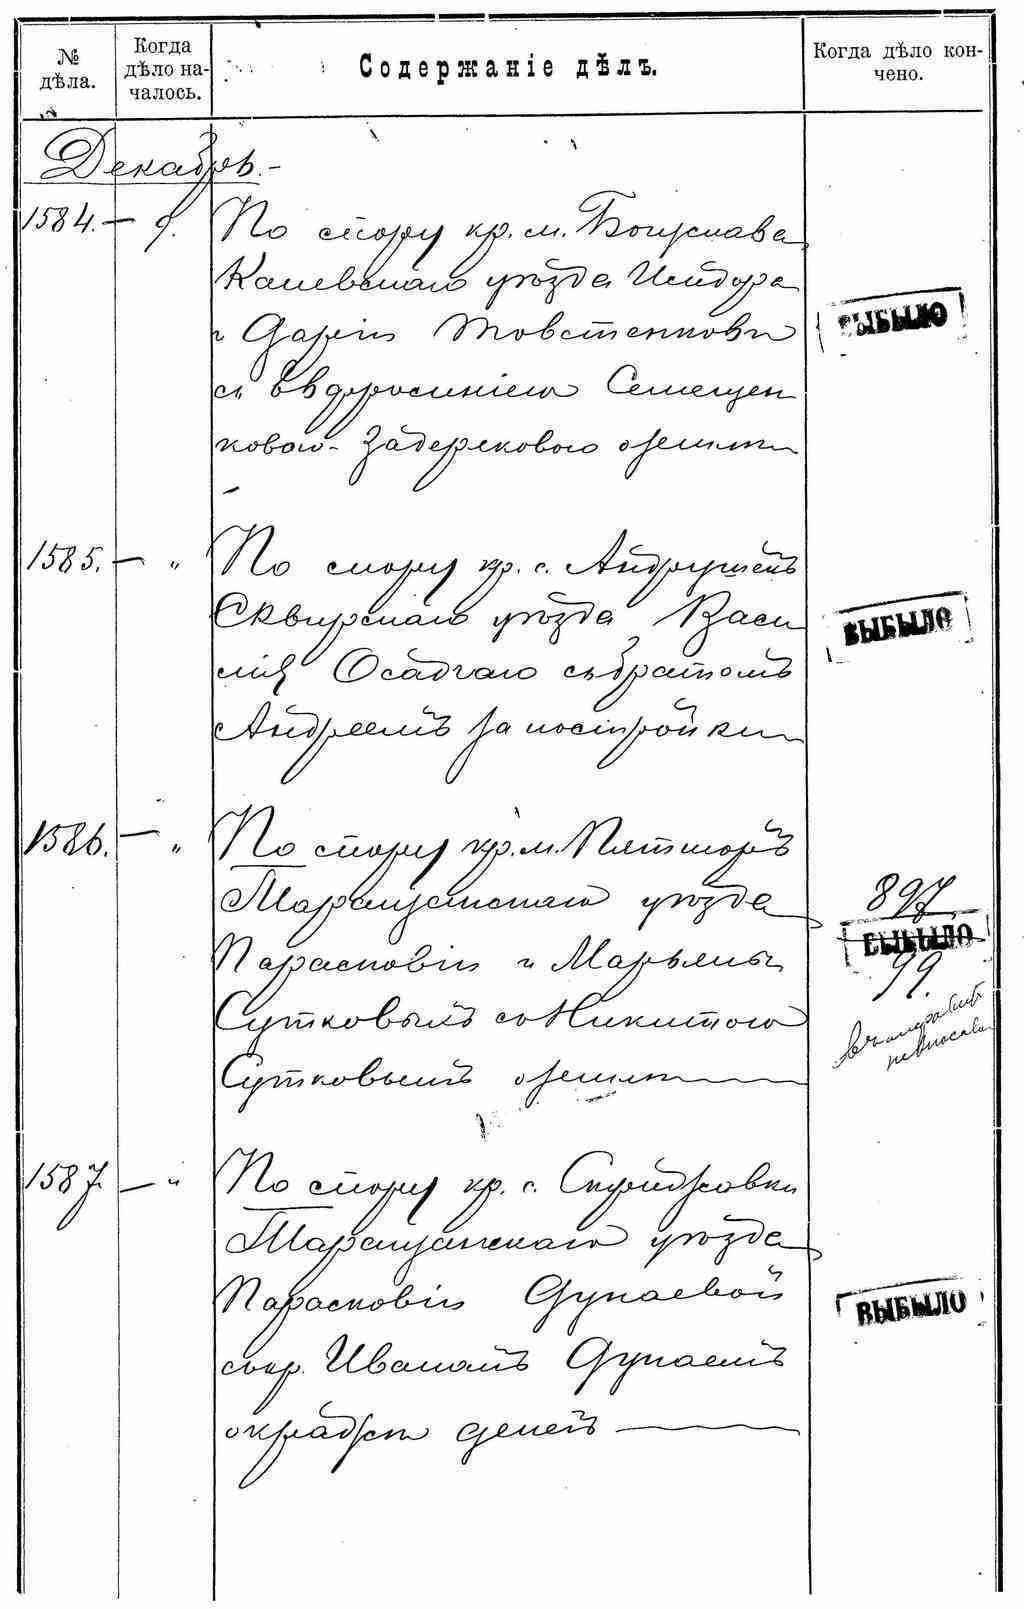 № дѣла.
Когда дѣло началось.
Содержаніе дѣлъ.
Когда дѣло кончено.
Декабрь.
1584. — 9. По спору кр. м. Богуслава
Каневскаго уѣзда Исидора
и Даріи Товстенковы
съ Семещен
коваго - о земли
ВЫБЫЛО
1585. — „ По спору кр. с. Андрушекъ
Сквирскаго уѣзда Васи
лія Осадчаго съ братомъ
Андреемъ за постройки
ВЫБЫЛО
1586. — „ По спору кр. м. Пятигоръ
Таращанскаго уѣзда
Парасковіи и Марьяны
Сутковыхъ со Никитою
Сутковымъ о земли
897
ВЫБЫЛО
99.
1587. — „ По спору кр. с.
Таращанскаго уѣзда
Парасковіи Дунаевой
съ кр. Иваномъ Дунаемъ
о кражѣ денегъ
ВЫБЫЛО